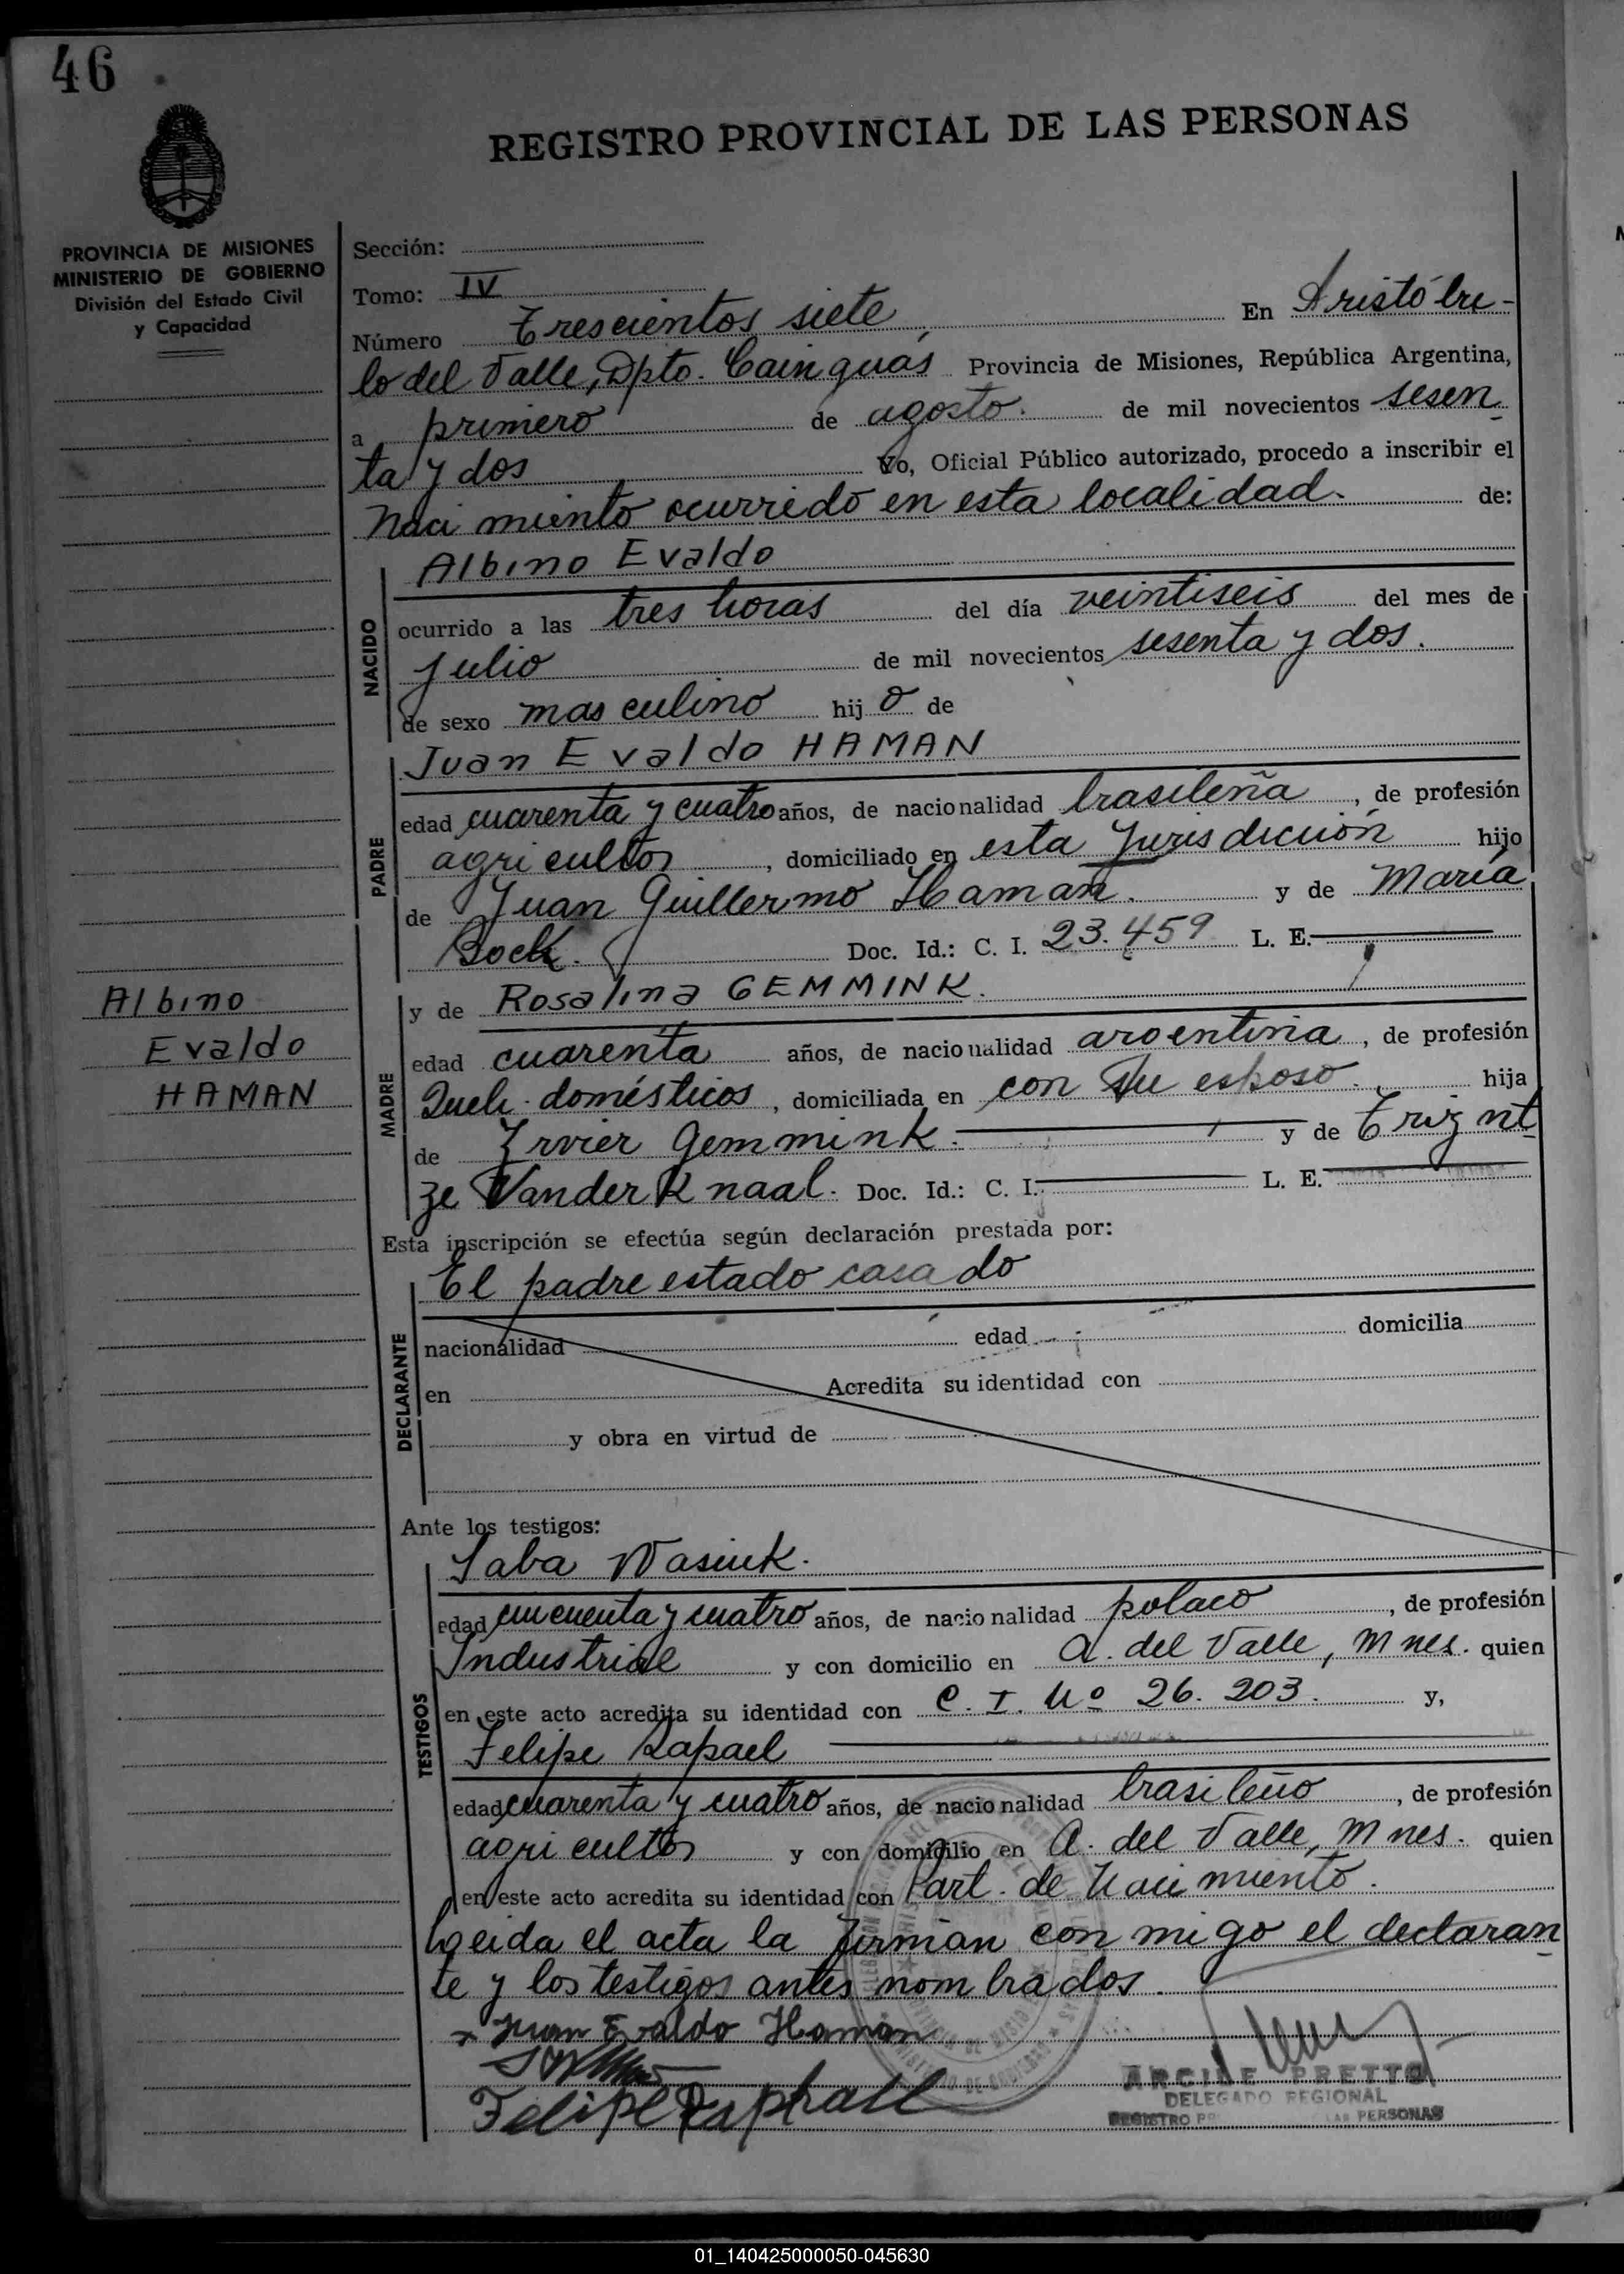 46
REGISTRO PROVINCIAL DE LAS PERSONAS
PROVINCIA DE MISIONES
MINISTERIO DE GOBIERNO
División del Estado Civil
y Capacidad
Sección:
Tomo: IV
Número Trescientos siete, En Aristóbu-
lo del Valle, Dpto. Cainguás Provincia de Misiones, República Argentina,
a primero de agosto. de mil novecientos sesen
ta y dos Yo, Oficial Público autorizado, procedo a inscribir el
Naci miento ocurrido en esta localidad. de:
Albino Evaldo
NACIDO
ocurrido a las tres horas del día veintiseis del mes de
julio de mil novecientos sesenta y dos.
de sexo masculino hijo de
Juan Evaldo HAMAN
PADRE
edad cuarenta y cuatro años, de nacionalidad brasileña, de profesión
agricultor, domiciliado en esta Jurisdicción hijo
de Juan Guillermo Haman. y de María
Bock. Doc. Id.: C. I. 23.459 L. E.
y de Rosalina GEMMINK.
MADRE
edad cuarenta años, de nacionalidad argentina, de profesión
Queh. domésticos, domiciliada en con su esposo. hija
de Gemmink. y de
ze Vander Knaal. Doc. Id.: C. I. L. E.
Albino
Evaldo
HAMAN
Esta inscripción se efectúa según declaración prestada por:
El padre estado casado
DECLARANTE
nacionalidad edad domicilia
en Acredita su identidad con
y obra en virtud de
Ante los testigos:
Saba Wasiuk.
TESTIGOS
edad cincuenta y cuatro años, de nacionalidad polaco, de profesión
Industrial y con domicilio en A. del Valle, Mnes. quien
en este acto acredita su identidad con C. I. Nº 26.203. y,
Felipe Rapael
edad cuarenta y cuatro años, de nacionalidad brasileño, de profesión
agricultor y con domicilio en A. del Valle, Mnes. quien
en este acto acredita su identidad con Part. de Nacimiento.
Leida el acta la firman con migo el declaran
te y los testigos antes nombrados.
x Juan Evaldo Haman
Felipe Raphael
ARCILE PRETTO
DELEGADO REGIONAL
REGISTRO LAS PERSONAS
01_140425000050-045630